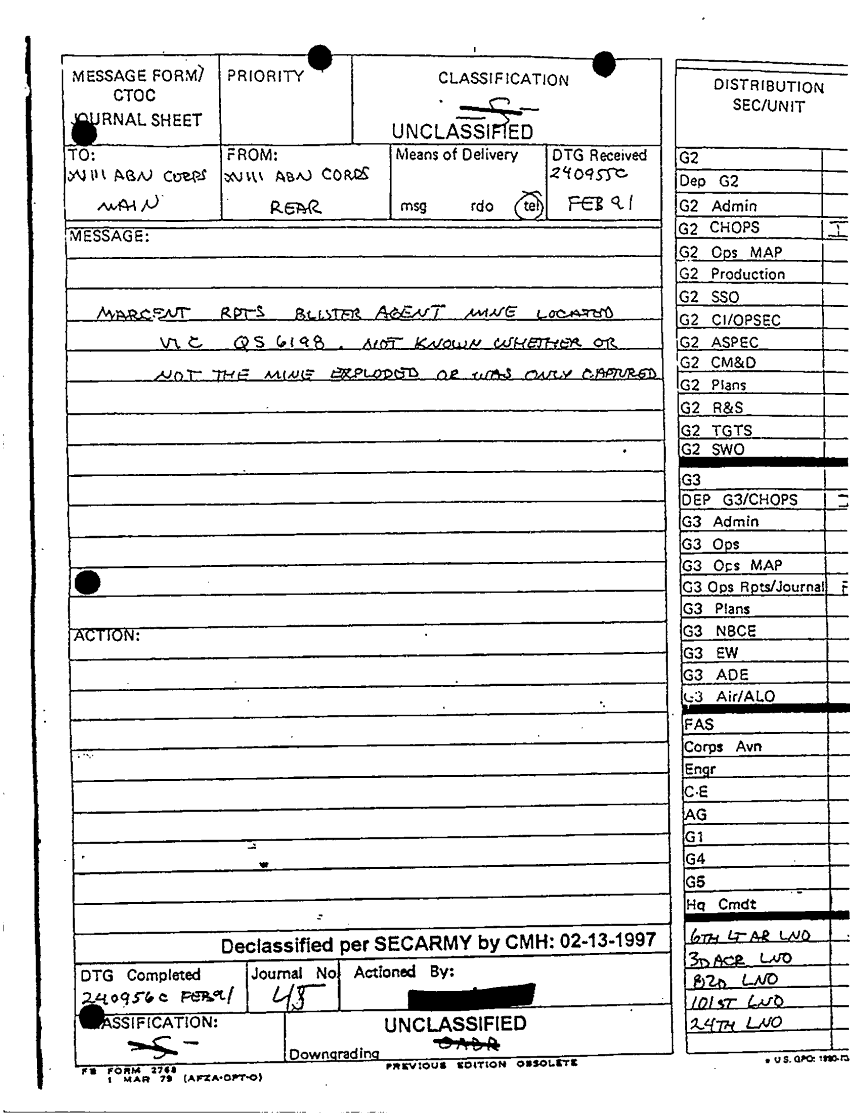 MESSAGE FORM/
CTOC
JOURNAL SHEET
PRIORITY
CLASSIFICATION
S
UNCLASSIFIED
TO:
XVIII ABN CORPS
MAIN
FROM:
XVIII ABN CORPS
REAR
Means of Delivery
msg rdo tel
DTG Received
240955C
FEB 91
MESSAGE:
MARCENT RPTS BLISTER AGENT MINE LOCATED
VIC QS 6198. NOT KNOWN WHETHER OR
NOT THE MINE EXPLODED OR WAS ONLY CAPTURED
ACTION:
Declassified per SECARMY by CMH: 02-13-1997
DTG Completed
240956C FEB 91
Journal No
45
Actioned By:
ASSIFICATION:
S
UNCLASSIFIED
OADR
Downgrading
FB FORM 2768
1 MAR 79 (AFZA-DPT-O)
PREVIOUS EDITION OBSOLETE
DISTRIBUTION
SEC/UNIT
G2
Dep G2
G2 Admin
G2 CHOPS
G2 Ops MAP
G2 Production
G2 SSO
G2 CI/OPSEC
G2 ASPEC
G2 CM&D
G2 Plans
G2 R&S
G2 TGTS
G2 SWO
G3
DEP G3/CHOPS
G3 Admin
G3 Ops
G3 Ops MAP
G3 Ops Rpts/Journal
G3 Plans
G3 NBCE
G3 EW
G3 ADE
G3 Air/ALO
FAS
Corps Avn
Engr
C-E
AG
G1
G4
G5
Hq Cmdt
6TH LT AR LNO
3D ACR LNO
82D LNO
101ST LNO
24TH LNO
U.S. GPO: